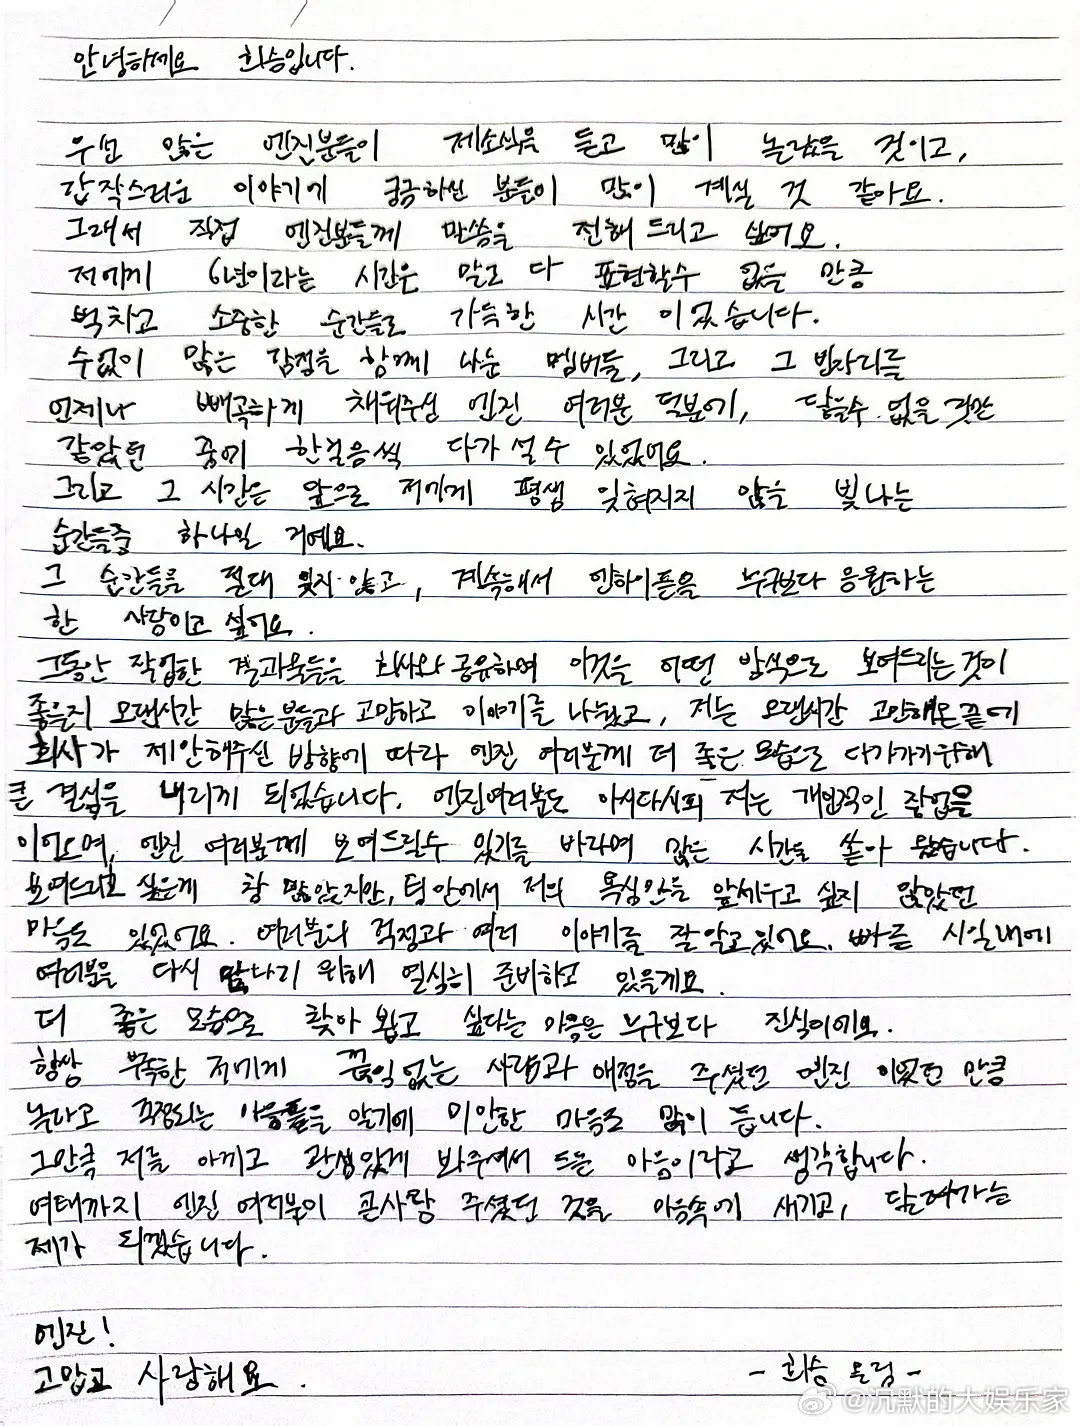 안녕하세요 희승입니다.
우선 많은 엔진분들이 제소식을 듣고 많이 놀랐을 것이고,
갑작스러운 이야기에 궁금하신 분들이 많이 계실 것 같아요.
그래서 직접 엔진분들께 말씀을 전해 드리고 싶어요.
저에게 6년이라는 시간은 말로 다 표현할수 없을 만큼
벅차고 소중한 순간들로 가득한 시간 이었습니다.
수없이 많은 감정을 함께 나눈 멤버들, 그리고 그 빈자리를
언제나 빼곡하게 채워주신 엔진 여러분 덕분에, 닿을수 없을 것만
같았던 꿈에 한걸음씩 다가 설 수 있었어요.
그리고 그 시간은 앞으로 저에게 평생 잊혀지지 않을 빛나는
순간들중 하나일 거예요.
그 순간들을 절대 잊지 않고, 계속해서 엔하이픈을 누구보다 응원하는
한 사람이고 싶어요.
그동안 작업한 결과물들을 회사와 공유하며 이것을 어떤 방식으로 보여드리는 것이
좋을지 오랜시간 많은분들과 고민하고 이야기를 나눴고, 저는 오랜시간 고민해온 끝에
회사가 제안해주신 방향에 따라 엔진 여러분께 더 좋은 모습으로 다가가기위해
큰 결심을 내리게 되었습니다. 엔진여러분도 아시다시피 저는 개인적인 작업을
이어오며, 엔진 여러분께 보여드릴수 있기를 바라며 많은 시간을 쏟아 왔습니다.
보여드리고 싶은게 참 많았지만, 팀 안에서 저의 욕심만을 앞세우고 싶지 않았던
마음도 있었어요. 여러분의 걱정과 여러 이야기를 잘 알고 있어요. 빠른 시일내에
여러분을 다시 만나기 위해 열심히 준비하고 있을게요.
더 좋은 모습으로 찾아 뵙고 싶다는 마음은 누구보다 진심이에요.
항상 부족한 저에게 끊임없는 사랑과 애정을 주셨던 엔진 이었던 만큼
놀라고 걱정되는 마음들을 알기에 미안한 마음도 많이 듭니다.
그만큼 저를 아끼고 관심있게 봐주셔서 드는 마음이라고 생각합니다.
여태까지 엔진 여러분이 큰사랑 주셨던 것을 마음속에 새기고, 달려가는
제가 되겠습니다.
엔진!
고맙고 사랑해요.
- 희승 올림 -
@沉默的大娱乐家